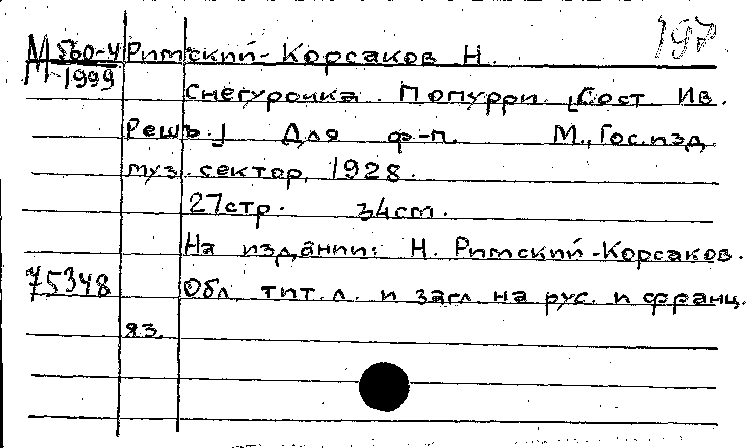 197
М 560-4 Римский-Корсаков Н.
М-1999
Снегурочка. Попурри. [Сост. Ив.
Решъ.] Для ф-п. М., Гос. изд.
муз. сектор, 1928.
27стр. 34cm.
На издании: Н. Римский-Корсаков.
75348 Обл. тит. л. и загл. на рус. и франц.
яз.